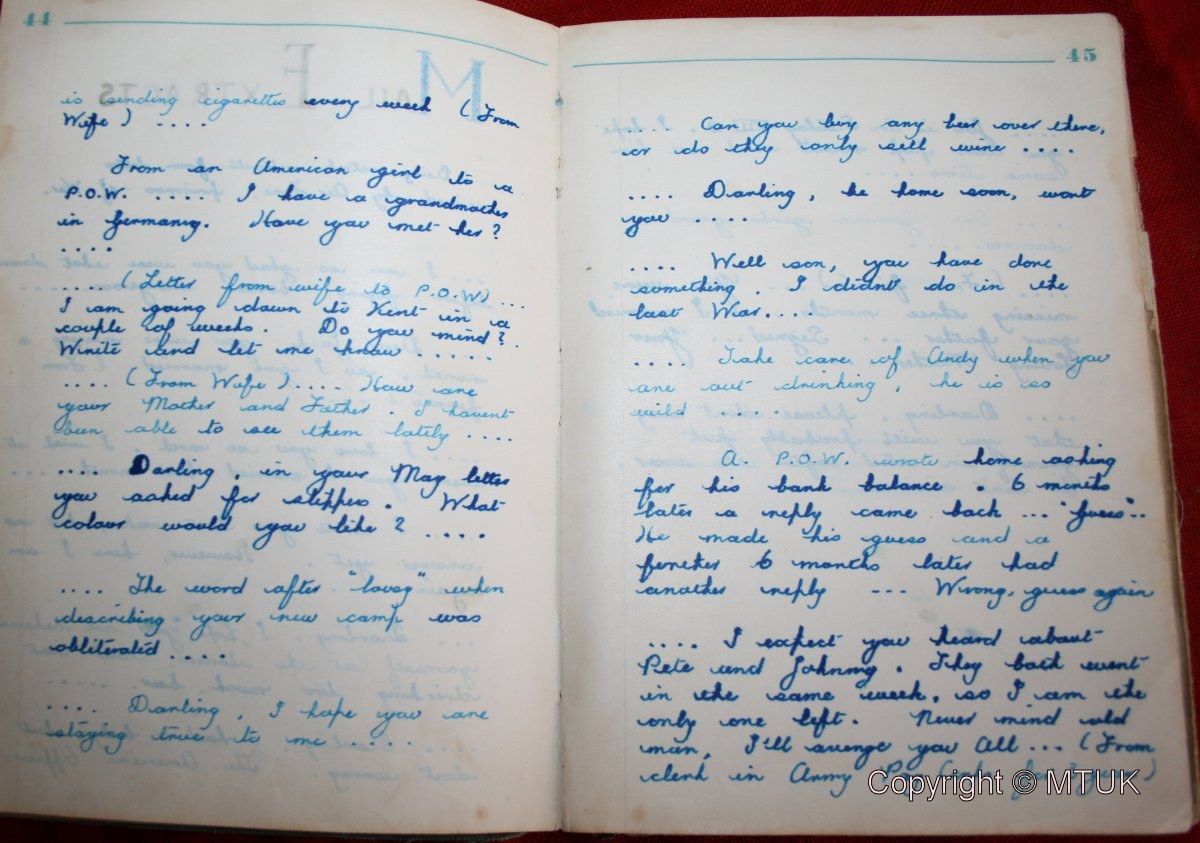 44
is sending cigarettes every week (From
Wife) ....
From an American girl to a
P.O.W. .... I have a grandmother
in Germany. Have you met her?
....
.... (Letter from wife to P.O.W) ...
I am going down to Kent in a
couple of weeks. Do you mind?
Write and let me know .....
.... (From Wife).... How are
your Mother and Father. I havent
been able to see them lately ....
.... Darling, in your May letter
you asked for slippers. What
colour would you like? ....
.... The word after "lovay" when
describing your new camp was
obliterated ....
.... Darling, I hope you are
staying true to me .....
45
....! Can you buy any beer over there,
or do they only sell wine ....
.... Darling, be home soon, wont
you .....
.... Well son, you have done
something, I didnt do in the
last War....
.... Take care of Andy when you
are out drinking, he is so
wild .....
A. P.O.W. wrote home asking
for his bank balance. 6 months
later a reply came back ... "Guess"..
He made his guess and a
further 6 months later had
another reply --- Wrong, guess again
.... I expect you heard about
Pete and Johnny. They both went
in the same week, so I am the
only one left. Never mind old
man, I'll avenge you All... (From
clerk in Army Pay Corps for
Copyright © MTUK